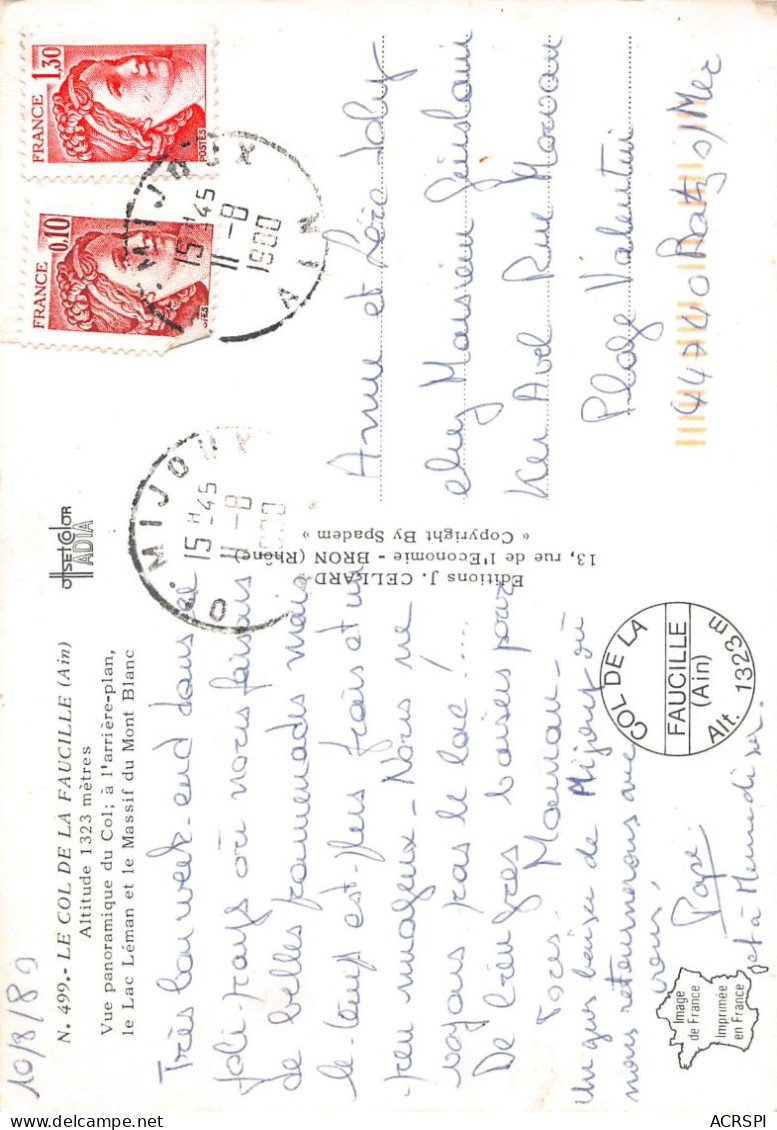 10/8/80
N. 499.- LE COL DE LA FAUCILLE (Ain)
Altitude 1323 mètres
Vue panoramique du Col; à l'arrière-plan,
le Lac Léman et le Massif du Mont Blanc
OFFSETCOLOR
IADIA
Très bon week-end dans ce
joli pays où nous faisons
de belles promenades mais
le temps est plus frais et un
peu nuageux - Nous ne
voyons pas le lac!....
De bien gros baisers pour
Tous. Maman -
Un gros baiser de Mijoux où
nous retournerons avec
vous,
Papa
et à Memedi sr.
Editions J. CELLARD
13, rue de l'Economie - BRON (Rhône)
« Copyright By Spadem »
COL DE LA
FAUCILLE
(Ain)
Alt. 1323 m
Image
de France
Imprimée
en France
FRANCE
1,30
POSTES
FRANCE
0,10
POSTES
MIJOUX
15 H 45
11 -8
1980
AIN
O. MIJOUX
15 H 45
11 -8
1980
Anne et Joly
chez Monsieur Guislain
Ker Avel Rue Morvan
Plage Valentin
44740 Batz s/Mer
ACRSPI